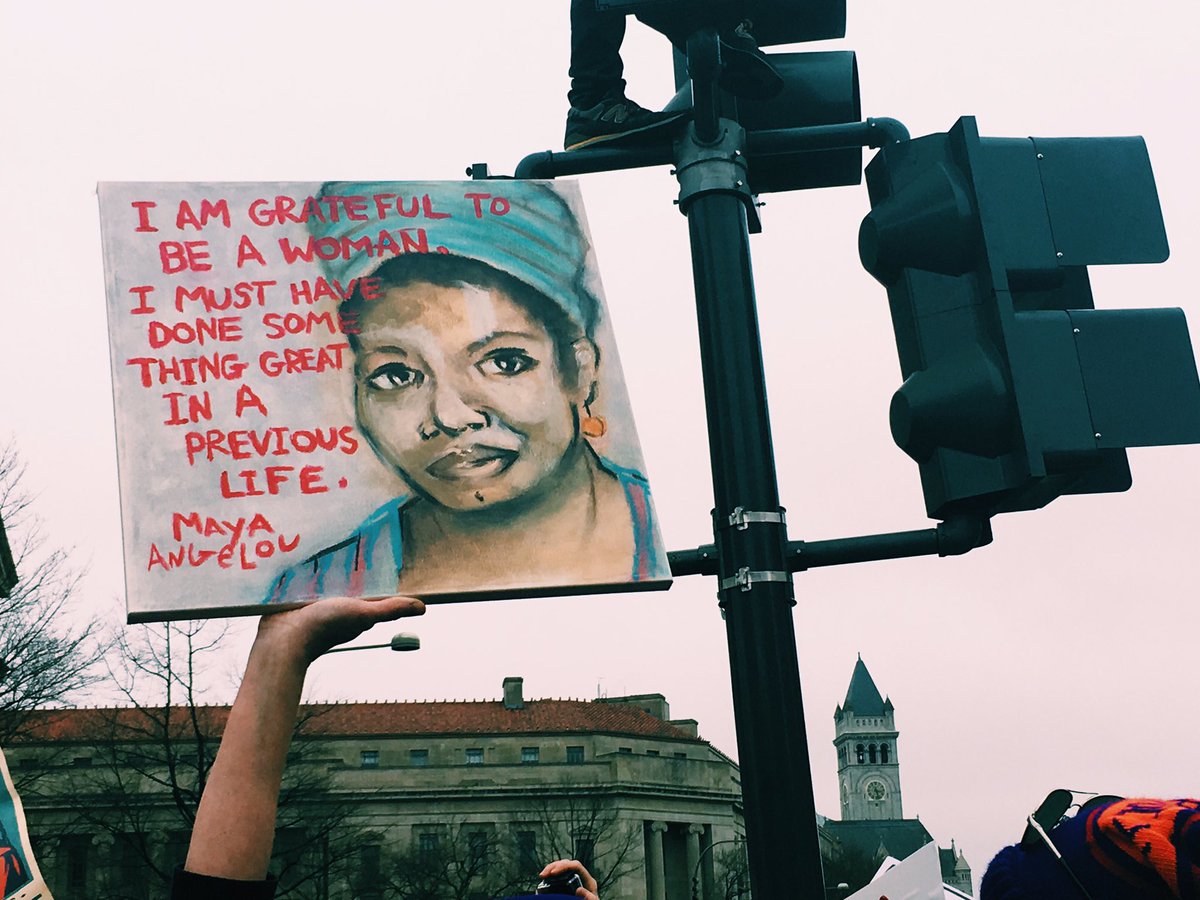 I AM GRATEFUL TO
BE A WOMAN.
I MUST HAVE
DONE SOME
THING GREAT
IN A
PREVIOUS
LIFE.
MAYA
ANGELOU